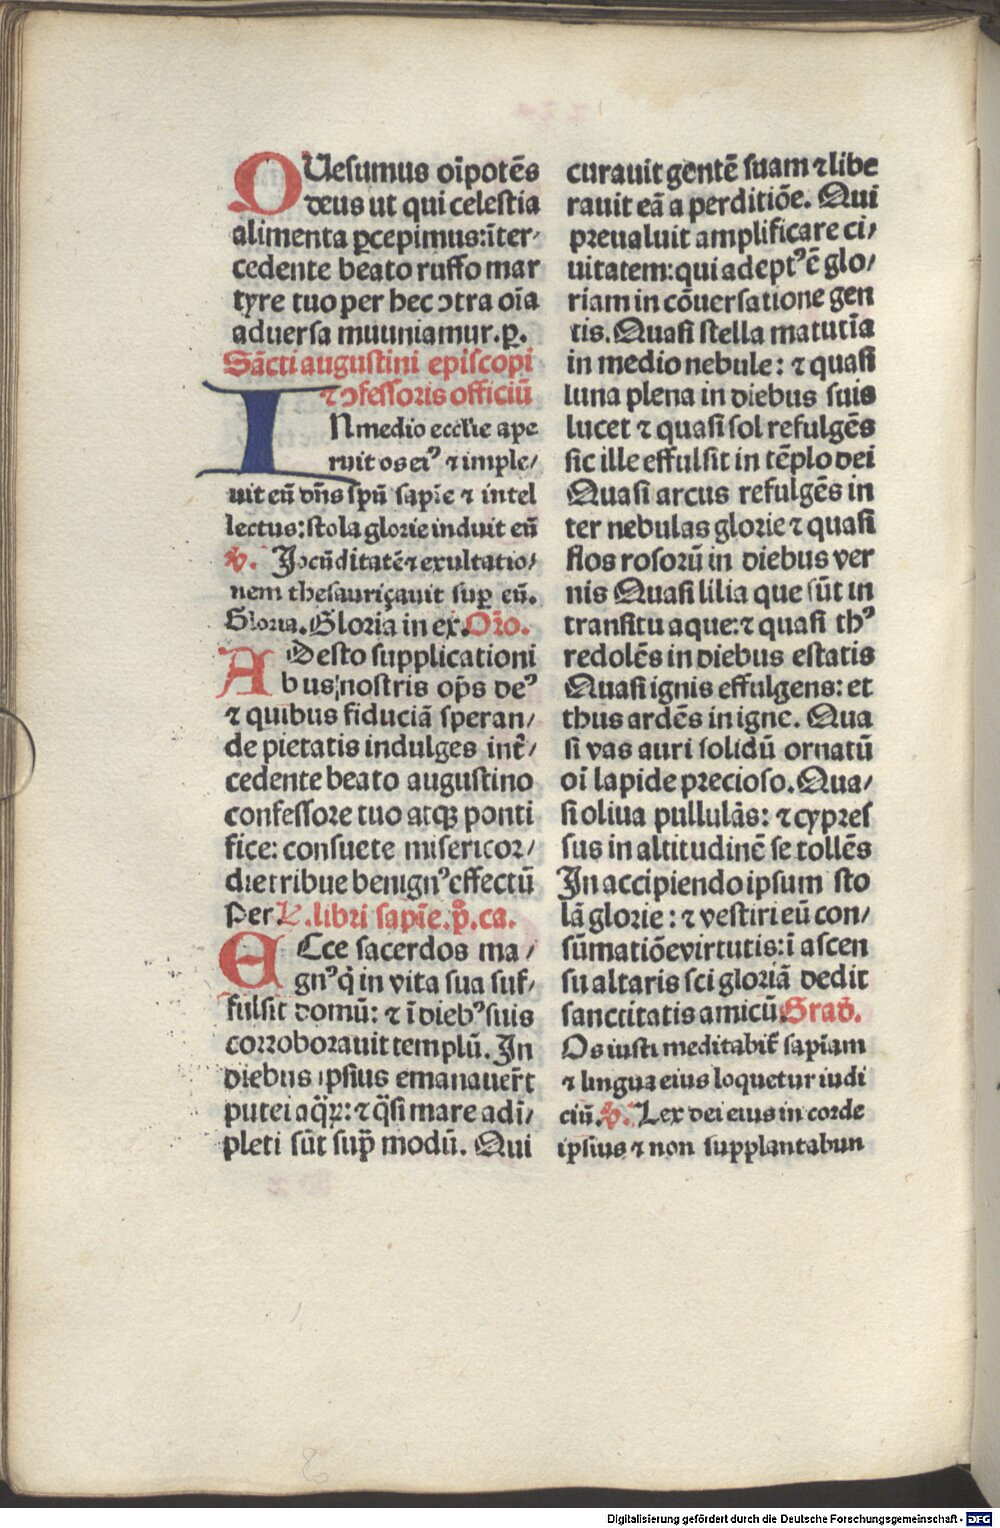 QUesumus oīpotēs
deus ut qui celestia
alimenta ꝑcepimus:īter-
cedente beato ruffo mar
tyre tuo per hec ↄtra oīa
aduersa muuniamur.ꝑ.
Sācti augustini episcopi
⁊ ↄfessoris officiū
IN medio ecclīe ape
ruit os eiꝰ ⁊ imple/
uit eū dn̄s spū sapīe ⁊ intel
lectus: stola glorie induit eū
℣. Jocūditatē ⁊ exultatio/
nem thesauriçauit suꝑ eū.
Gloria. Gloria in ex. Or̄o.
ADesto supplicationi
bus nostris op̄s deꝰ
⁊ quibus fiduciā speran/
de pietatis indulges int̄/
cedente beato augustino
confessore tuo atqꝫ ponti
fice: consuete misericor/
die tribue benignꝰ effectū
Per L̄.libri sapīe.p̊.ca.
ECce sacerdos ma/
gnꝰ q̄ in vita sua suf/
fulsit domū: ⁊ ī diebꝰ suis
corroborauit templū. In
diebus ipsius emanauer̄t
putei aq̄ꝝ: ⁊ q̄si mare adi/
pleti sūt sup̄ modū. Qui
curauit gentē suam ⁊ libe
rauit eā a perditiōe. Qui
preualuit amplificare ci/
uitatem: qui adeptꝰ ē glo/
riam in cōuersatione gen
tis. Quasi stella matutīa
in medio nebule: ⁊ quasi
luna plena in diebus suis
lucet ⁊ quasi sol refulgēs
sic ille effulsit in tēplo dei
Quasi arcus refulgēs in
ter nebulas glorie ⁊ quasi
flos rosorū in diebus ver
nis Quasi lilia que sūt in
transitu aque: ⁊ quasi thꝰ
redolēs in diebus estatis
Quasi ignis effulgens: et
thus ardēs in igne. Qua
si vas auri solidū ornatū
oī lapide precioso. Qua/
si oliua pullulās: ⁊ cypres
sus in altitudinē se tollēs
In accipiendo ipsum sto
lā glorie: ⁊ vestiri eū con/
sūmatiōe virtutis: ī ascen
su altaris sci gloriā dedit
sanctitatis amicū. Grad̄.
Os iusti meditabit̄ sapīam
⁊ lingua eius loquetur iudi
ciū. ℣. Lex dei eius in corde
ipsius ⁊ non supplantabun
Digitalisierung gefördert durch die Deutsche Forschungsgemeinschaft - DFG